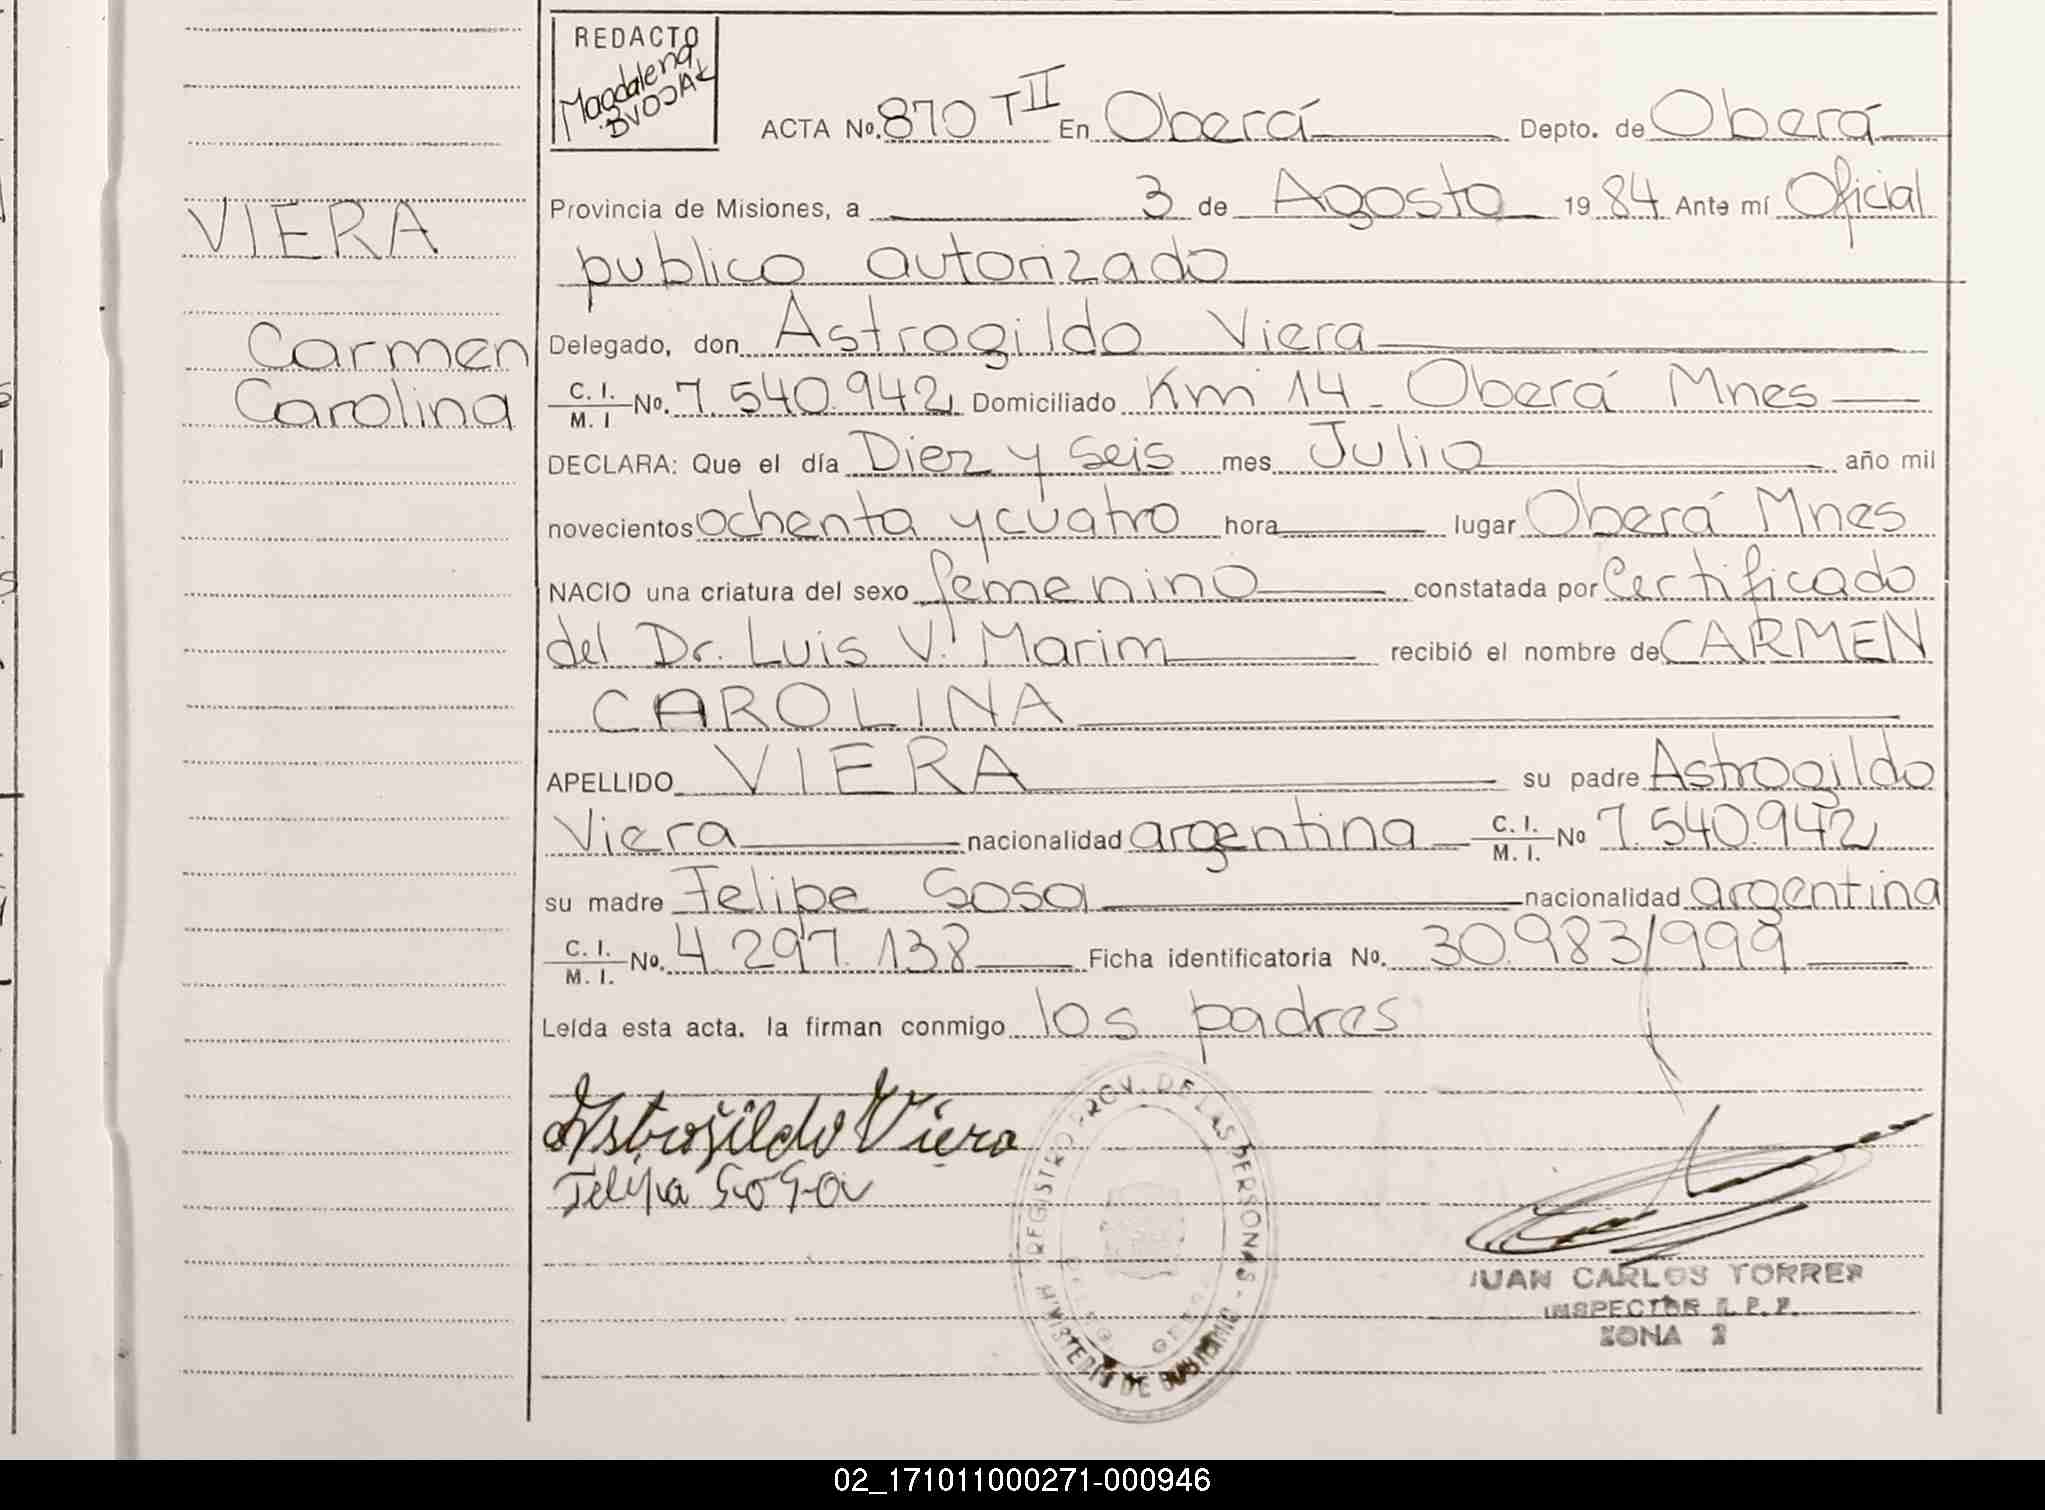 REDACTO
Magdalena
DVOJAK
ACTA No. 870 T II En Oberá Depto. de Oberá
Provincia de Misiones, a 3 de Agosto 1984 Ante mí Oficial
publico autorizado
VIERA
Carmen
Carolina
Delegado, don Astrogildo Viera
C. I. / M. I No. 7.540.942 Domiciliado Km 14 - Oberá Mnes
DECLARA: Que el día Diez y seis mes Julio año mil
novecientos ochenta y cuatro hora lugar Oberá Mnes
NACIO una criatura del sexo femenino constatada por Certificado
del Dr. Luis V. Marim recibió el nombre de CARMEN
CAROLINA
APELLIDO VIERA su padre Astrogildo
Viera nacionalidad argentina C. I. / M. I. No 7.540.942
su madre Felipe Sosa nacionalidad argentina
C. I. / M. I. No. 4.297.138 Ficha identificatoria No. 30.983/999
Leída esta acta. la firman conmigo los padres
Astrogildo Viera
Felipa Sosa
REGISTRO PROV. DE LAS PERSONAS -
MINISTERIO DE GOBIERNO
JUAN CARLOS TORRES
INSPECTOR R. P. P.
ZONA 2
02_171011000271-000946